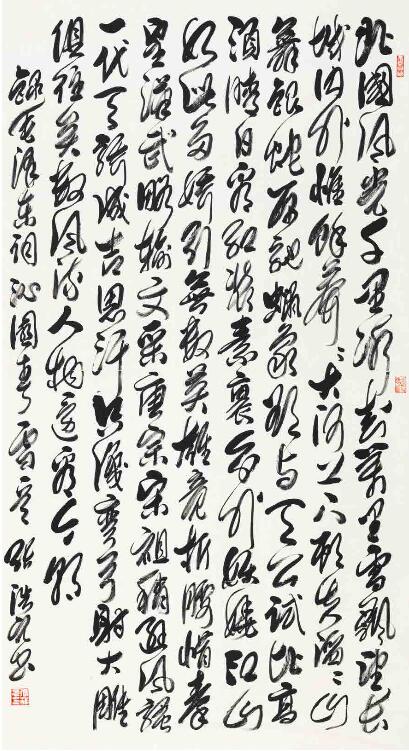 北國風光千里冰封萬里雪飄望長
城内外惟餘莽々大河上下頓失滔々山
舞銀蛇原馳蠟象欲与天公試比高
須晴日看紅裝素裹分外妖嬈江山
如此多嬌引無數英雄竞折腰惜秦
皇漢武略輸文采唐宗宋祖稍遜風騷
一代天驕成吉思汗只識彎弓射大雕
俱往矣數風流人物還看今朝
錄毛澤東詞沁園春雪